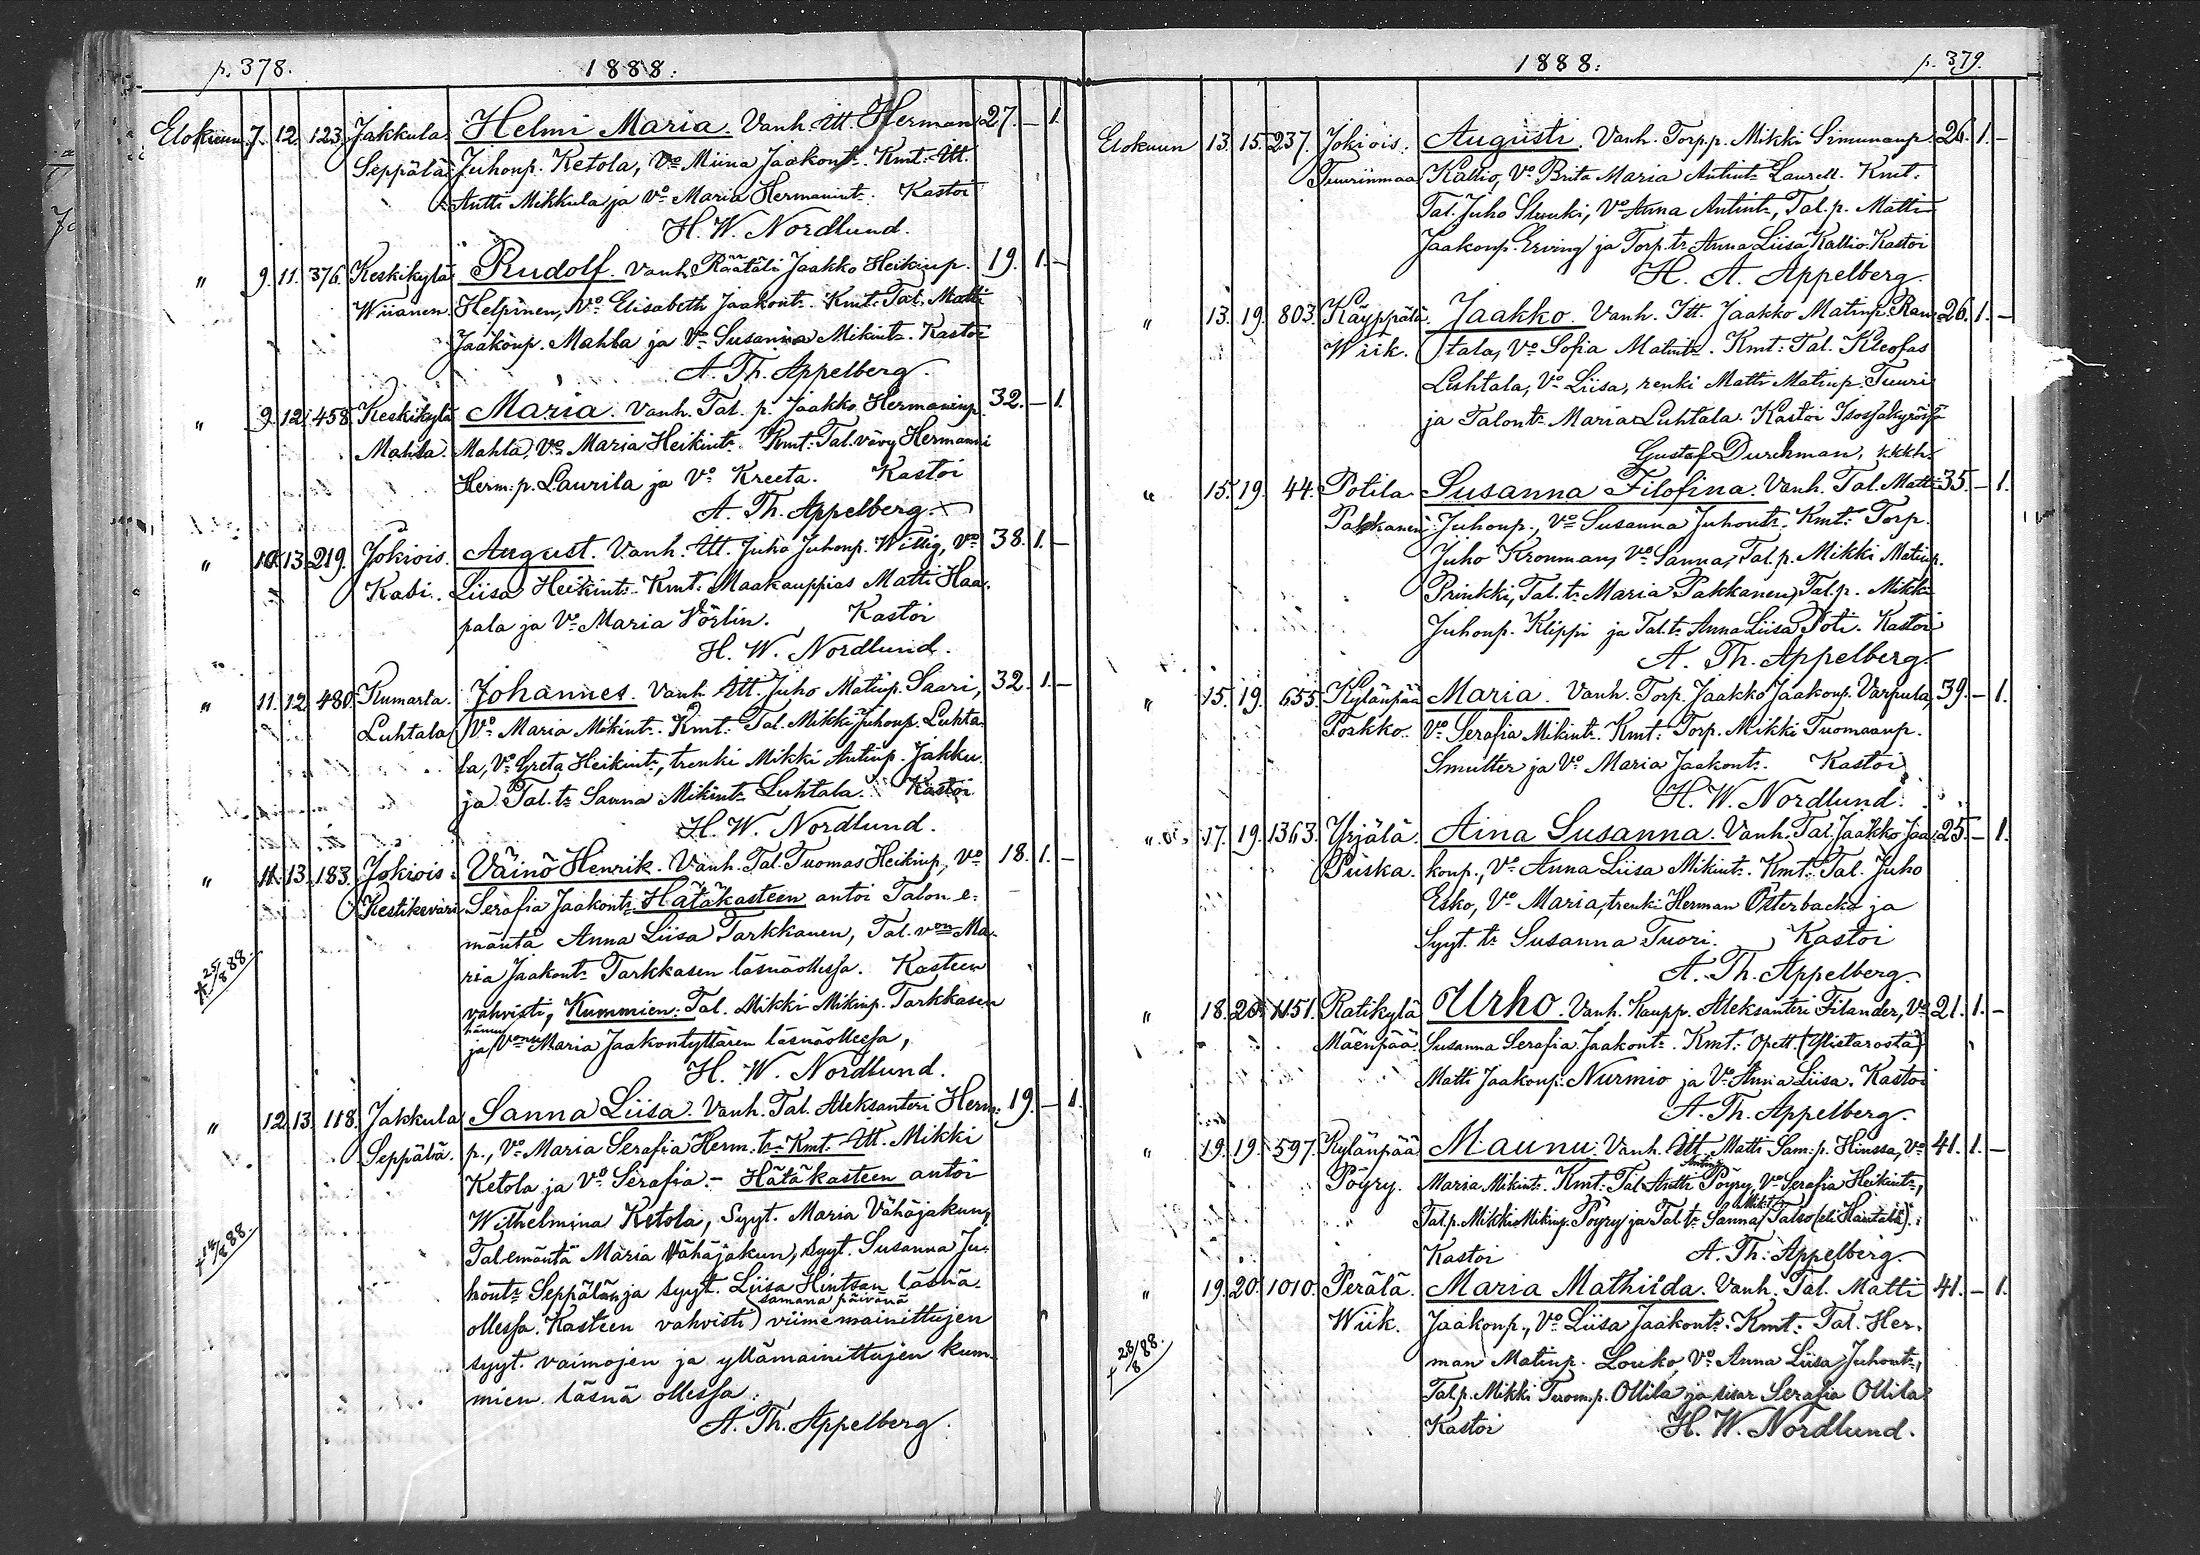 p. 378.
1888.
Elokuun 7. 12. 123. Jakkula Helmi Maria. Vanh. Itt. Herman 27. – 1.
Seppälä Juhonp. Ketola, Vo Miina Jaakontr. Kmt. Itt.
Antti Mikkula ja Vo Maria Hermanintr. Kastoi
H. W. Nordlund.
" 9. 11. 376. Keskikylä Rudolf. Vanh. Räätäli Jaakko Heikinp. 19. 1. –
Wiianen. Helpinen, Vo Elisabeth Jaakontr. Kmt: Tal. Matti
Jaakonp. Mahla ja Vo Susanna Mikintr. Kastoi
A. Th. Appelberg.
" 9. 12. 458. Keskikylä Maria. Vanh. Tal. p. Jaakko Hermaninp. 32. – 1.
Mahla. Mahla, Vo Maria Heikintr. Kmt: Tal. vävy Hermanni
Herm: p. Laurila ja Vo Kreeta. Kastoi
A. Th. Appelberg.
" 10. 13. 219. Jokiois. August. Vanh. Itt. Juho Juhonp. Wittig, Vo 38. 1. –
Kabi. Liisa Heikintr. Kmt. Maakauppias Matti Haa-
pala ja Vo Maria Nörlin. Kastoi
H. W. Nordlund.
" 11. 12. 480. Kumarla. Johannes. Vanh. Itt. Juho Matinp. Saari, 32. 1. –
Luhtala Vo Maria Mikintr. Kmt: Tal. Mikki Juhonp. Luhta-
la, Vo Greta Heikintr, trenki Mikki Antinp. Jakku.
ja Tal. tr Sanna Mikintr Luhtala. Kastoi
H. W. Nordlund.
" 11. 13. 183. Jokiois. Väinö Henrik. Vanh. Tal. Tuomas Heikinp, Vo 18. 1. –
Kestikeväri Serafia Jaakontr. Hätäkasteen antoi Talon e-
mäntä Anna Liisa Tarkkanen, Tal. von Ma-
ria Jaakontr Tarkkasen läsnäollessa. Kasteen
+ 25/8 88.
vahvisti, Kummien: Tal. Mikki Mikinp. Tarkkasen
ja hänen Vonsa Maria Jaakontyttären läsnäollessa,
H. W. Nordlund.
" 12. 13. 118. Jakkula Sanna Liisa. Vanh. Tal. Aleksanteri Herm: 19. – 1.
Seppälä. p., Vo Maria Serafia Herm. tr. Kmt. Itt. Mikki
Ketola ja Vo Serafia. – Hätäkasteen antoi
Wilhelmina Ketola, Syyt. Maria Vähäjakun,
Tal emäntä Maria Vähäjakun, Syyt. Susanna Ju-
hontr Seppälän ja Syyt. Liisa Hintsan läsnä
ollessa. Kasteen vahvisti samana päivänä viimemainittujen
syyt. vaimojen ja yllämainittujen kum-
mien läsnä ollessa.
A. Th. Appelberg.
1888.
p. 379.
Elokuun 13. 15. 237. Jokiois. Augusti. Vanh. Torpp. Mikki Simunanp. 26. 1. –
Tuurinmaa Kallio, Vo Brita Maria Antintr Laurell. Kmt.
Tal. Juho Slunki, Vo Anna Antintr, Tal. p. Matti
Jaakonp. Erving ja Torp. tr Anna Liisa Kallio. Kastoi
H. A. Appelberg.
" 13. 19. 803. Käyppälä Jaakko. Vanh. Itt. Jaakko Matinp. Ran- 26. 1. –
Wiik. tala, Vo Sofia Matintr. Kmt: Tal. Kleofas
Luhtala, Vo Liisa, renki Matti Matinp. Tuuri
ja Talontr Maria Luhtala. Kastoi Isossakyrössä
Gustaf Durchman, kkkh.
" 15. 19. 44. Potila Susanna Filofina. Vanh. Tal. Matti 35. – 1.
Pakkanen Juhonp., Vo Susanna Juhontr. Kmt: Torp.
Juho Kronman, Vo Sanna, Tal. p. Mikki Matinp.
Prinkki, Tal. tr Maria Pakkanen, Tal. p. Mikki
Juhonp. Klippi ja Tal. tr Anna Liisa Poti. Kastoi
A. Th. Appelberg.
" 15. 19. 655. Kylänpää Maria. Vanh. Torp. Jaakko Jaakonp. Varpula, 39. – 1.
Poskko. Vo Serafia Mikintr. Kmt: Torp. Mikki Tuomaanp.
Smulter ja Vo Maria Jaakontr. Kastoi
H. W. Nordlund.
" 17. 19. 1363. Yrjälä Aina Susanna. Vanh. Tal. Jaakko Jaa- 25. – 1.
Puska. konp., Vo Anna Liisa Mikintr. Kmt: Tal. Juho
Esko, Vo Maria, trenki Herman Österbacka ja
Syyt. tr Susanna Tuori. Kastoi
A. Th. Appelberg.
" 18. 20. 1151. Ratikylä Urho. Vanh. Kaupp. Aleksanteri Filander, Vo 21. 1. –
Mäenpää Susanna Serafia Jaakontr. Kmt: Opett. (Ylistarosta)
Matti Jaakonp. Nurmio ja Vo Anna Liisa. Kastoi
A. Th. Appelberg.
" 19. 19. 597. Kylänpää Maunu. Vanh. Itt. Matti Sam: p. Hinssa, Vo 41. 1. –
Pöyry. Maria Mikintr. Kmt: Tal. Antti Antinp. Pöyry, Vo Serafia Heikintr,
Tal. p. Mikki Mikinp. Pöyry ja Tal. tr Sanna Mik. tr Talso (eli Hantala).
Kastoi A. Th. Appelberg.
" 19. 20. 1010. Perälä. Maria Mathilda. Vanh. Tal. Matti 41. – 1.
Wiik. Jaakonp., Vo Liisa Jaakontr. Kmt: Tal. Her-
+ 28/8 88.
man Matinp. Louko, Vo Anna Liisa Juhontr,
Tal. p. Mikki Tuom. p. Ollila ja sisar Serafia Ollila
Kastoi H. W. Nordlund.